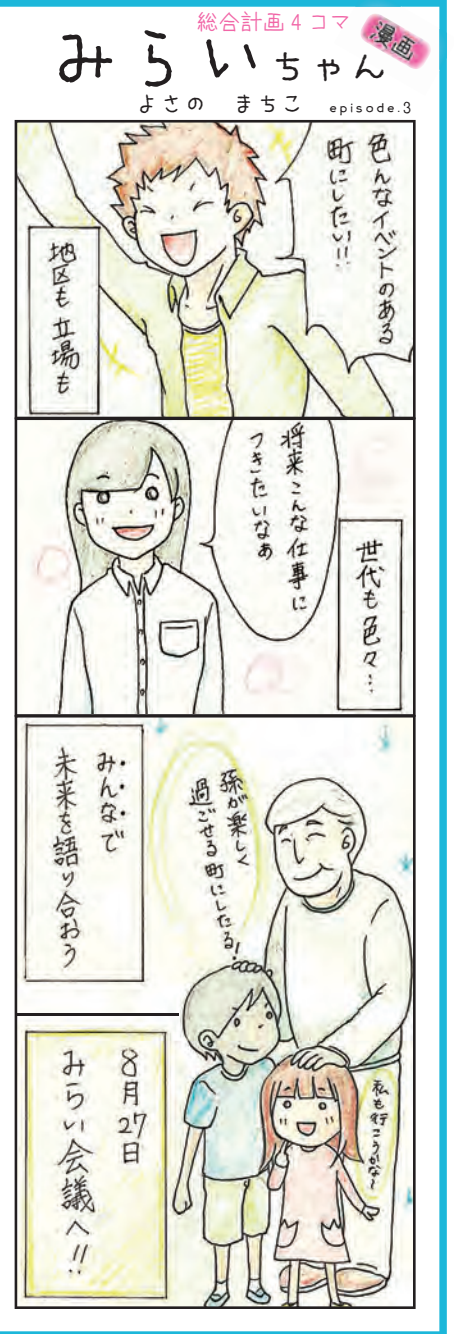 総合計画4コマ
漫画
みらいちゃん
よさの まちこ episode.3
色んなイベントのある
町にしたい!!
地区も立場も
将来こんな仕事に
つきたいなぁ
世代も色々…
孫が楽しく
過ごせる町にしたる!
みんなで
未来を語り合おう
私も行こうかな〜
8月27日
みらい会議へ!!